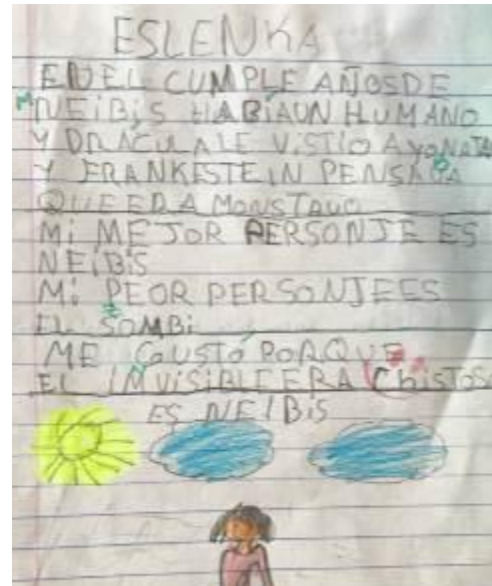 ESLENKA
EN EL CUMPLE AÑOS DE
NEIBIS HABIA UN HUMANO
Y DRÁCULA LE VISTIO A YONATA
Y FRANKESTEIN PENSABA
QUE ERA MONSTRUO
MI MEJOR PERSONJE ES
NEIBIS
MI PEOR PERSONJE ES
EL SOMBI
ME GUSTÓ PORQUE
EL IMVISIBLE ERA CHISTOS
ES NEIBIS